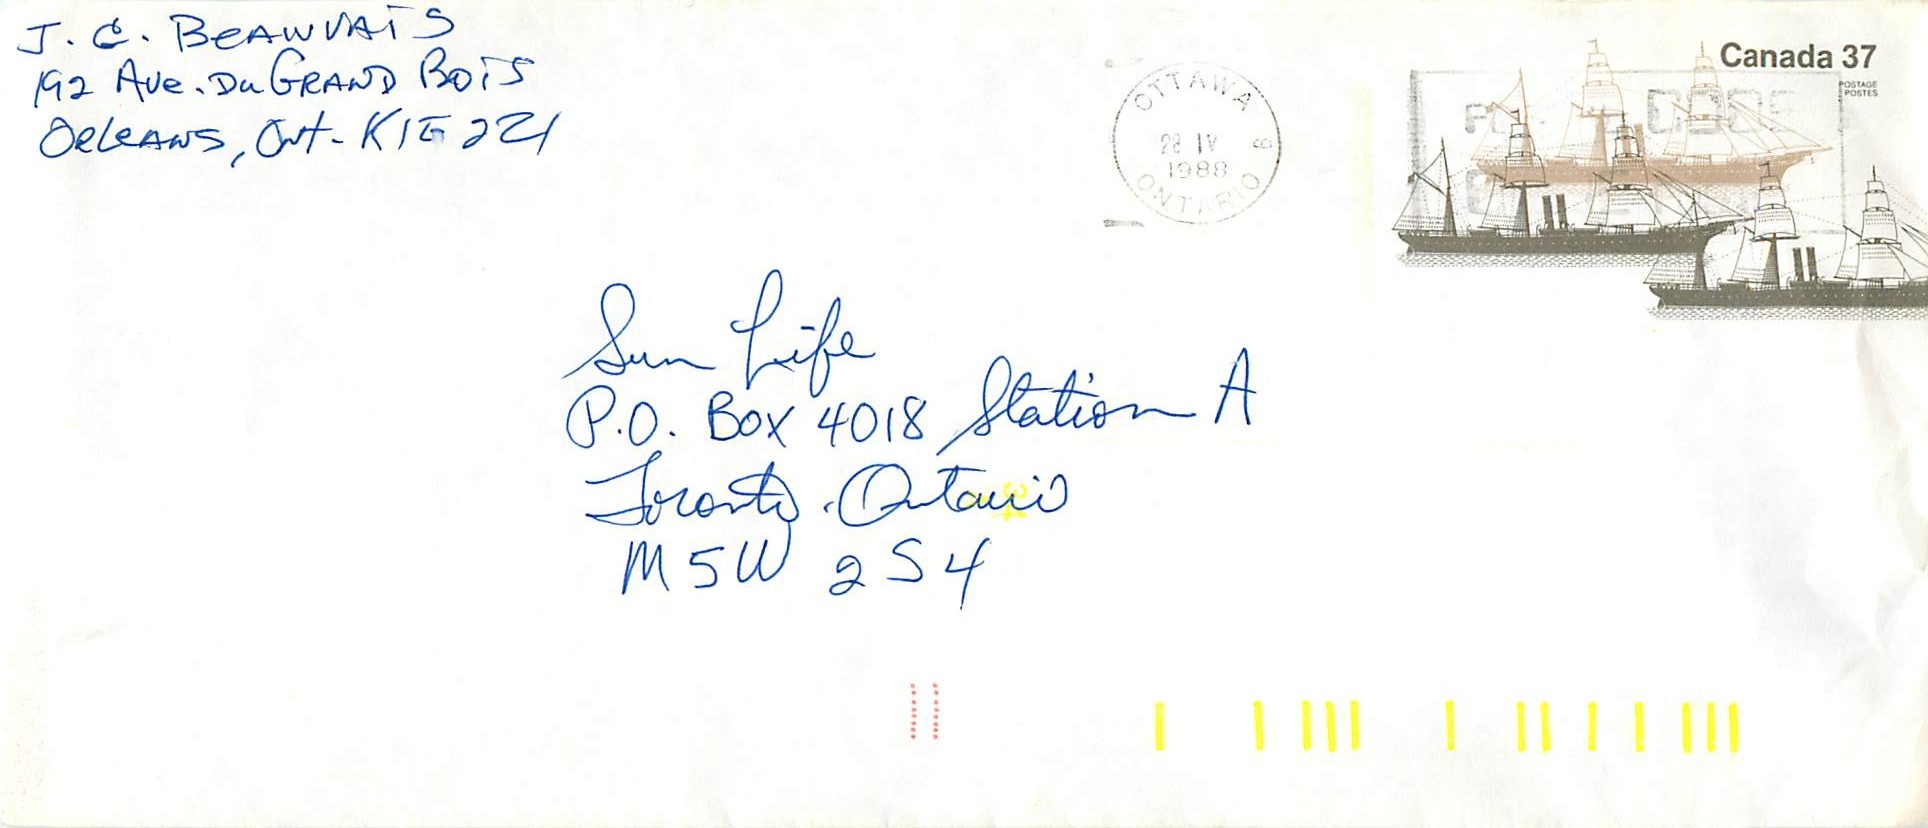 J. C. BEAUVAIS
192 AVE. DU GRAND BOIS
ORLEANS, Ont. K1E 2Z1
Canada 37
POSTAGE
POSTES
OTTAWA
28 IV
1988
B
ONTARIO
CODE
Sun Life
P.O. Box 4018 Station A
Toronto. Ontario
M5W 2S4